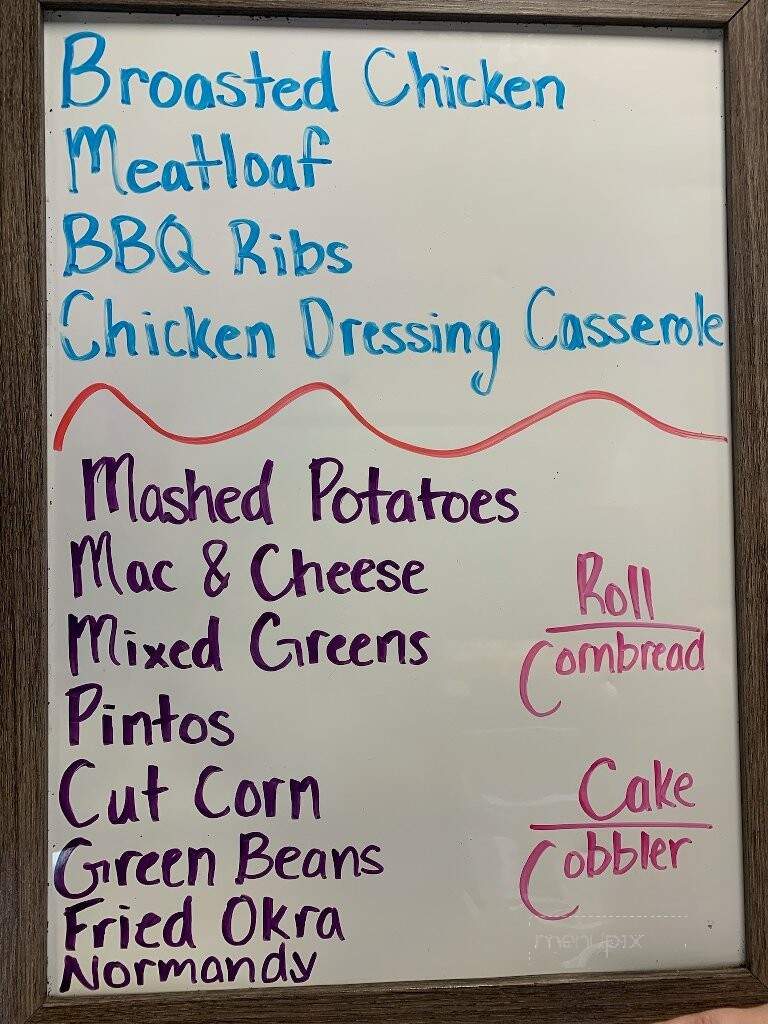 Broasted Chicken
Meatloaf
BBQ Ribs
Chicken Dressing Casserole
Mashed Potatoes
Mac & Cheese
Mixed Greens
Pintos
Cut Corn
Green Beans
Fried Okra
Normandy
Roll
Cornbread
Cake
Cobbler
menupix